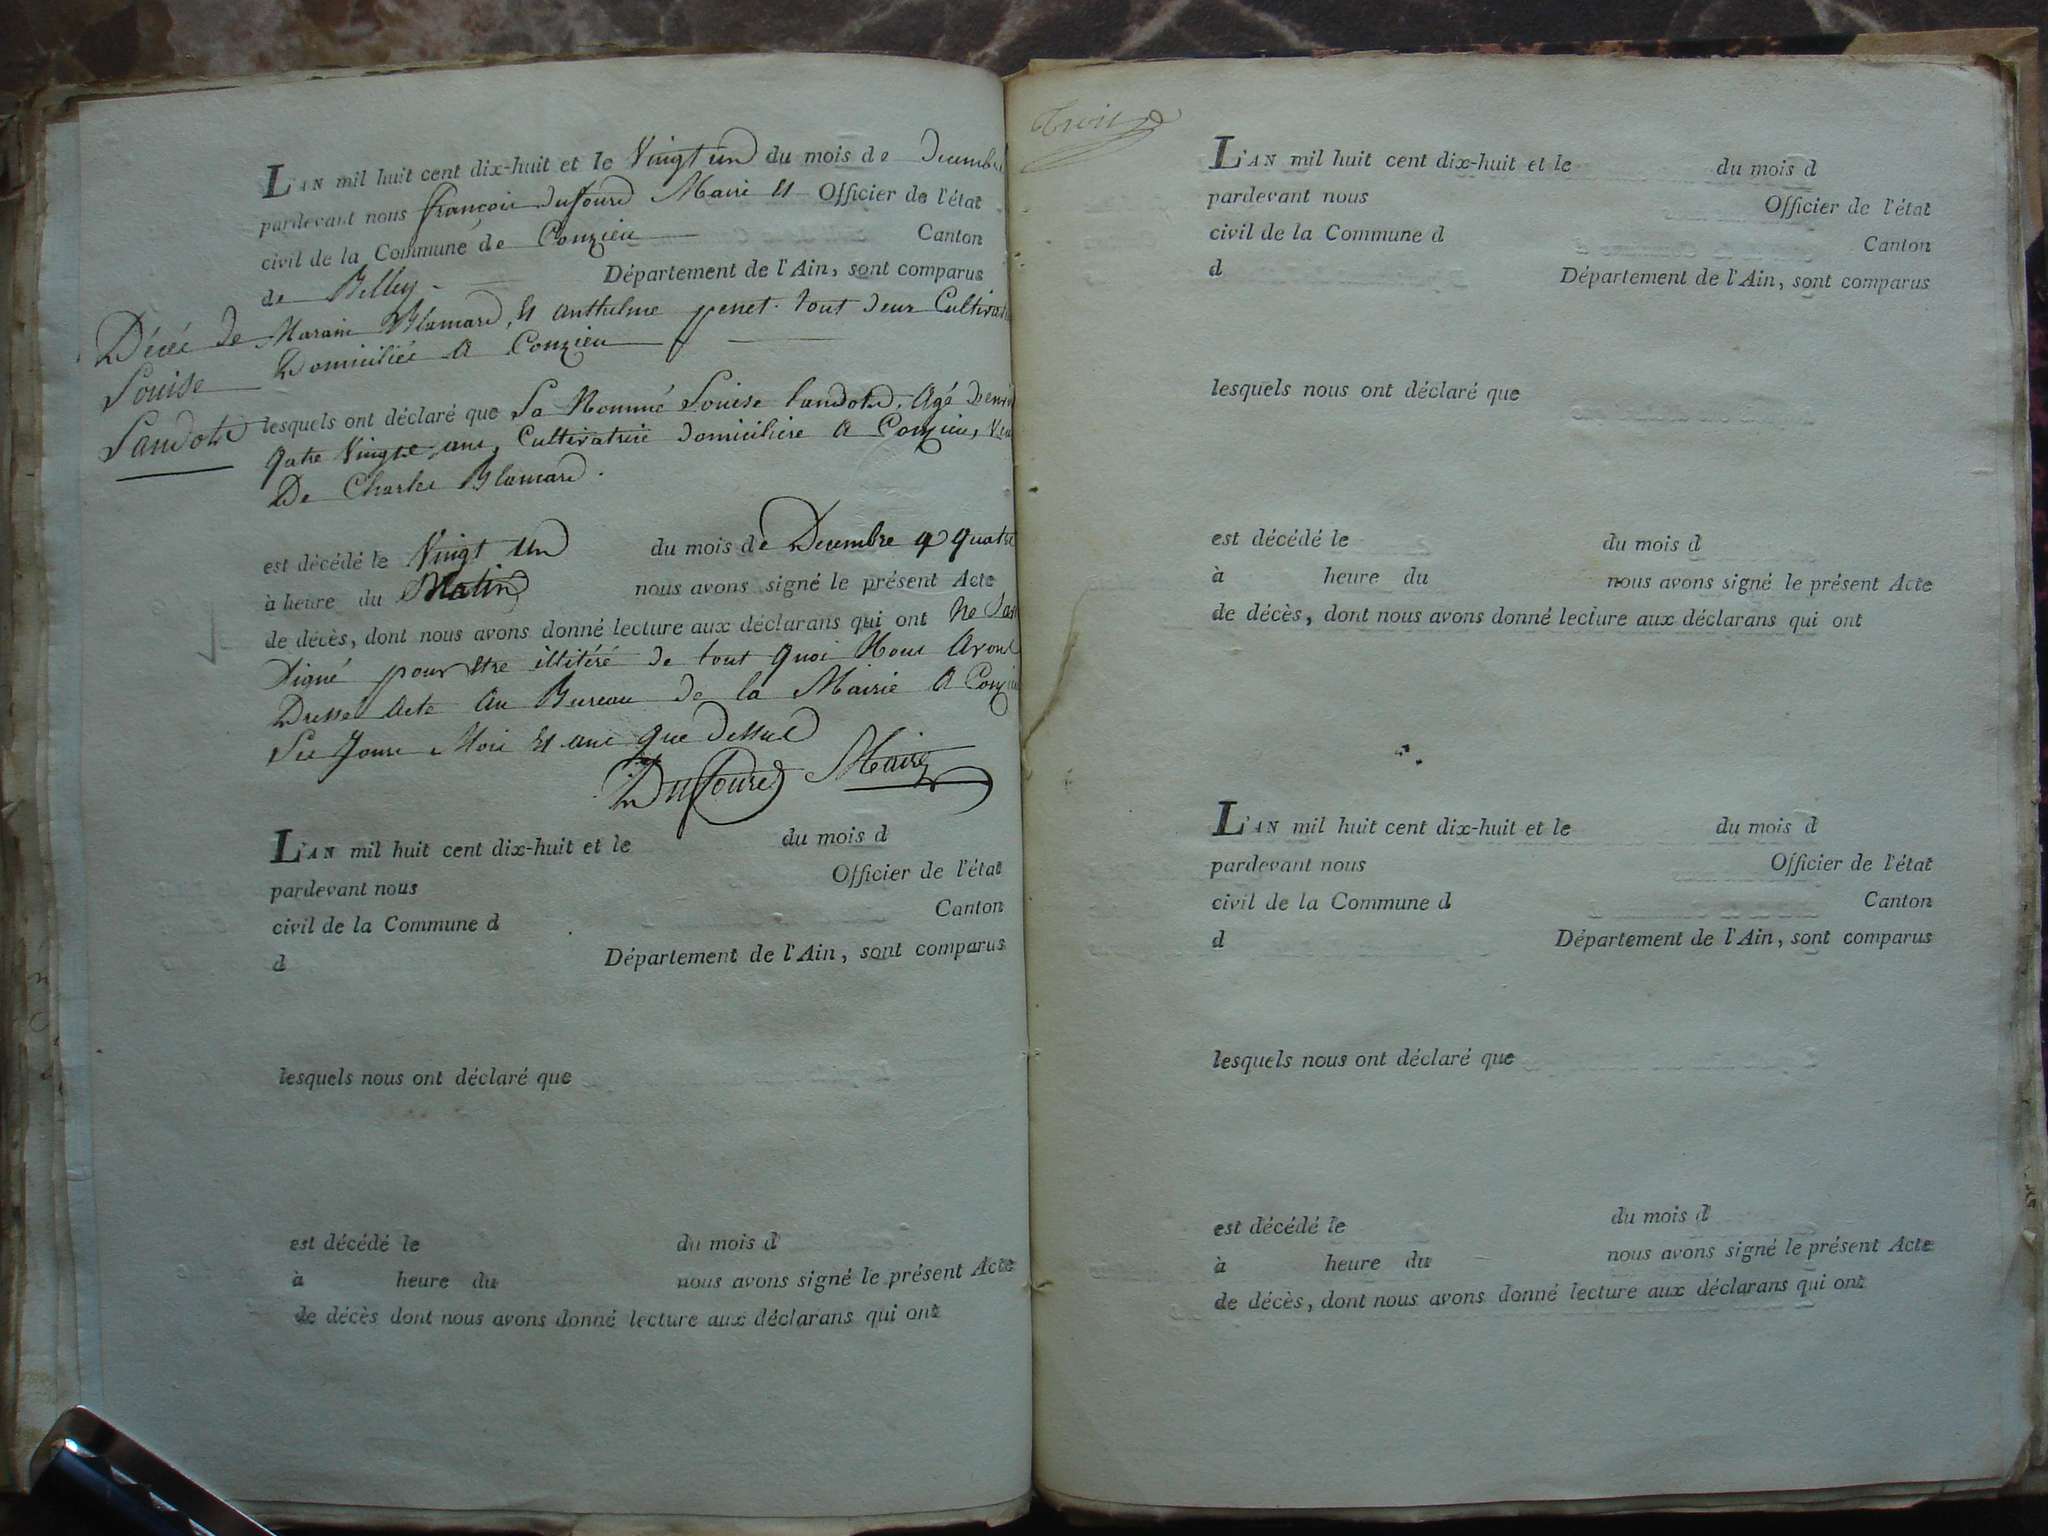 L'AN mil huit cent dix-huit et le Vingt un du mois de Decembre
pardevant nous françois dufourd Maire Et Officier de l'état
civil de la Commune de Conzieu Canton
de Belley Département de l'Ain, sont comparus
Marain Blamard, Et anthelme penet tout deux
Domiciliés A Conzieu
Décés de
Louise
Landotd
lesquels ont déclaré que La Nommé Louise landotd, Agé
qatre Vingts ans, Cultivatrice domicilière A Conzieu,
De Charle Blamard.
est décédé le Vingt Un du mois de Decembre a quatre
à heure du Matin nous avons signé le présent Acte
de décès, dont nous avons donné lecture aux déclarans qui ont Ne
Signé pour Etre illitéré de tout quoi Nous Avons
Dressé Acte Au Bureau de la Mairie A Conzieu
Moi Et an que Dessus
Dufourd Maire
L'AN mil huit cent dix-huit et le du mois d
pardevant nous Officier de l'état
civil de la Commune d Canton
d Département de l'Ain, sont comparus
lesquels nous ont déclaré que
est décédé le du mois d
à heure du nous avons signé le présent Acte
de décès dont nous avons donné lecture aux déclarans qui ont
L'AN mil huit cent dix-huit et le du mois d
pardevant nous Officier de l'état
civil de la Commune d Canton
d Département de l'Ain, sont comparus
lesquels nous ont déclaré que
est décédé le du mois d
à heure du nous avons signé le présent Acte
de décès, dont nous avons donné lecture aux déclarans qui ont
L'AN mil huit cent dix-huit et le du mois d
pardevant nous Officier de l'état
civil de la Commune d Canton
d Département de l'Ain, sont comparus
lesquels nous ont déclaré que
est décédé le du mois d
à heure du nous avons signé le présent Acte
de décès, dont nous avons donné lecture aux déclarans qui ont